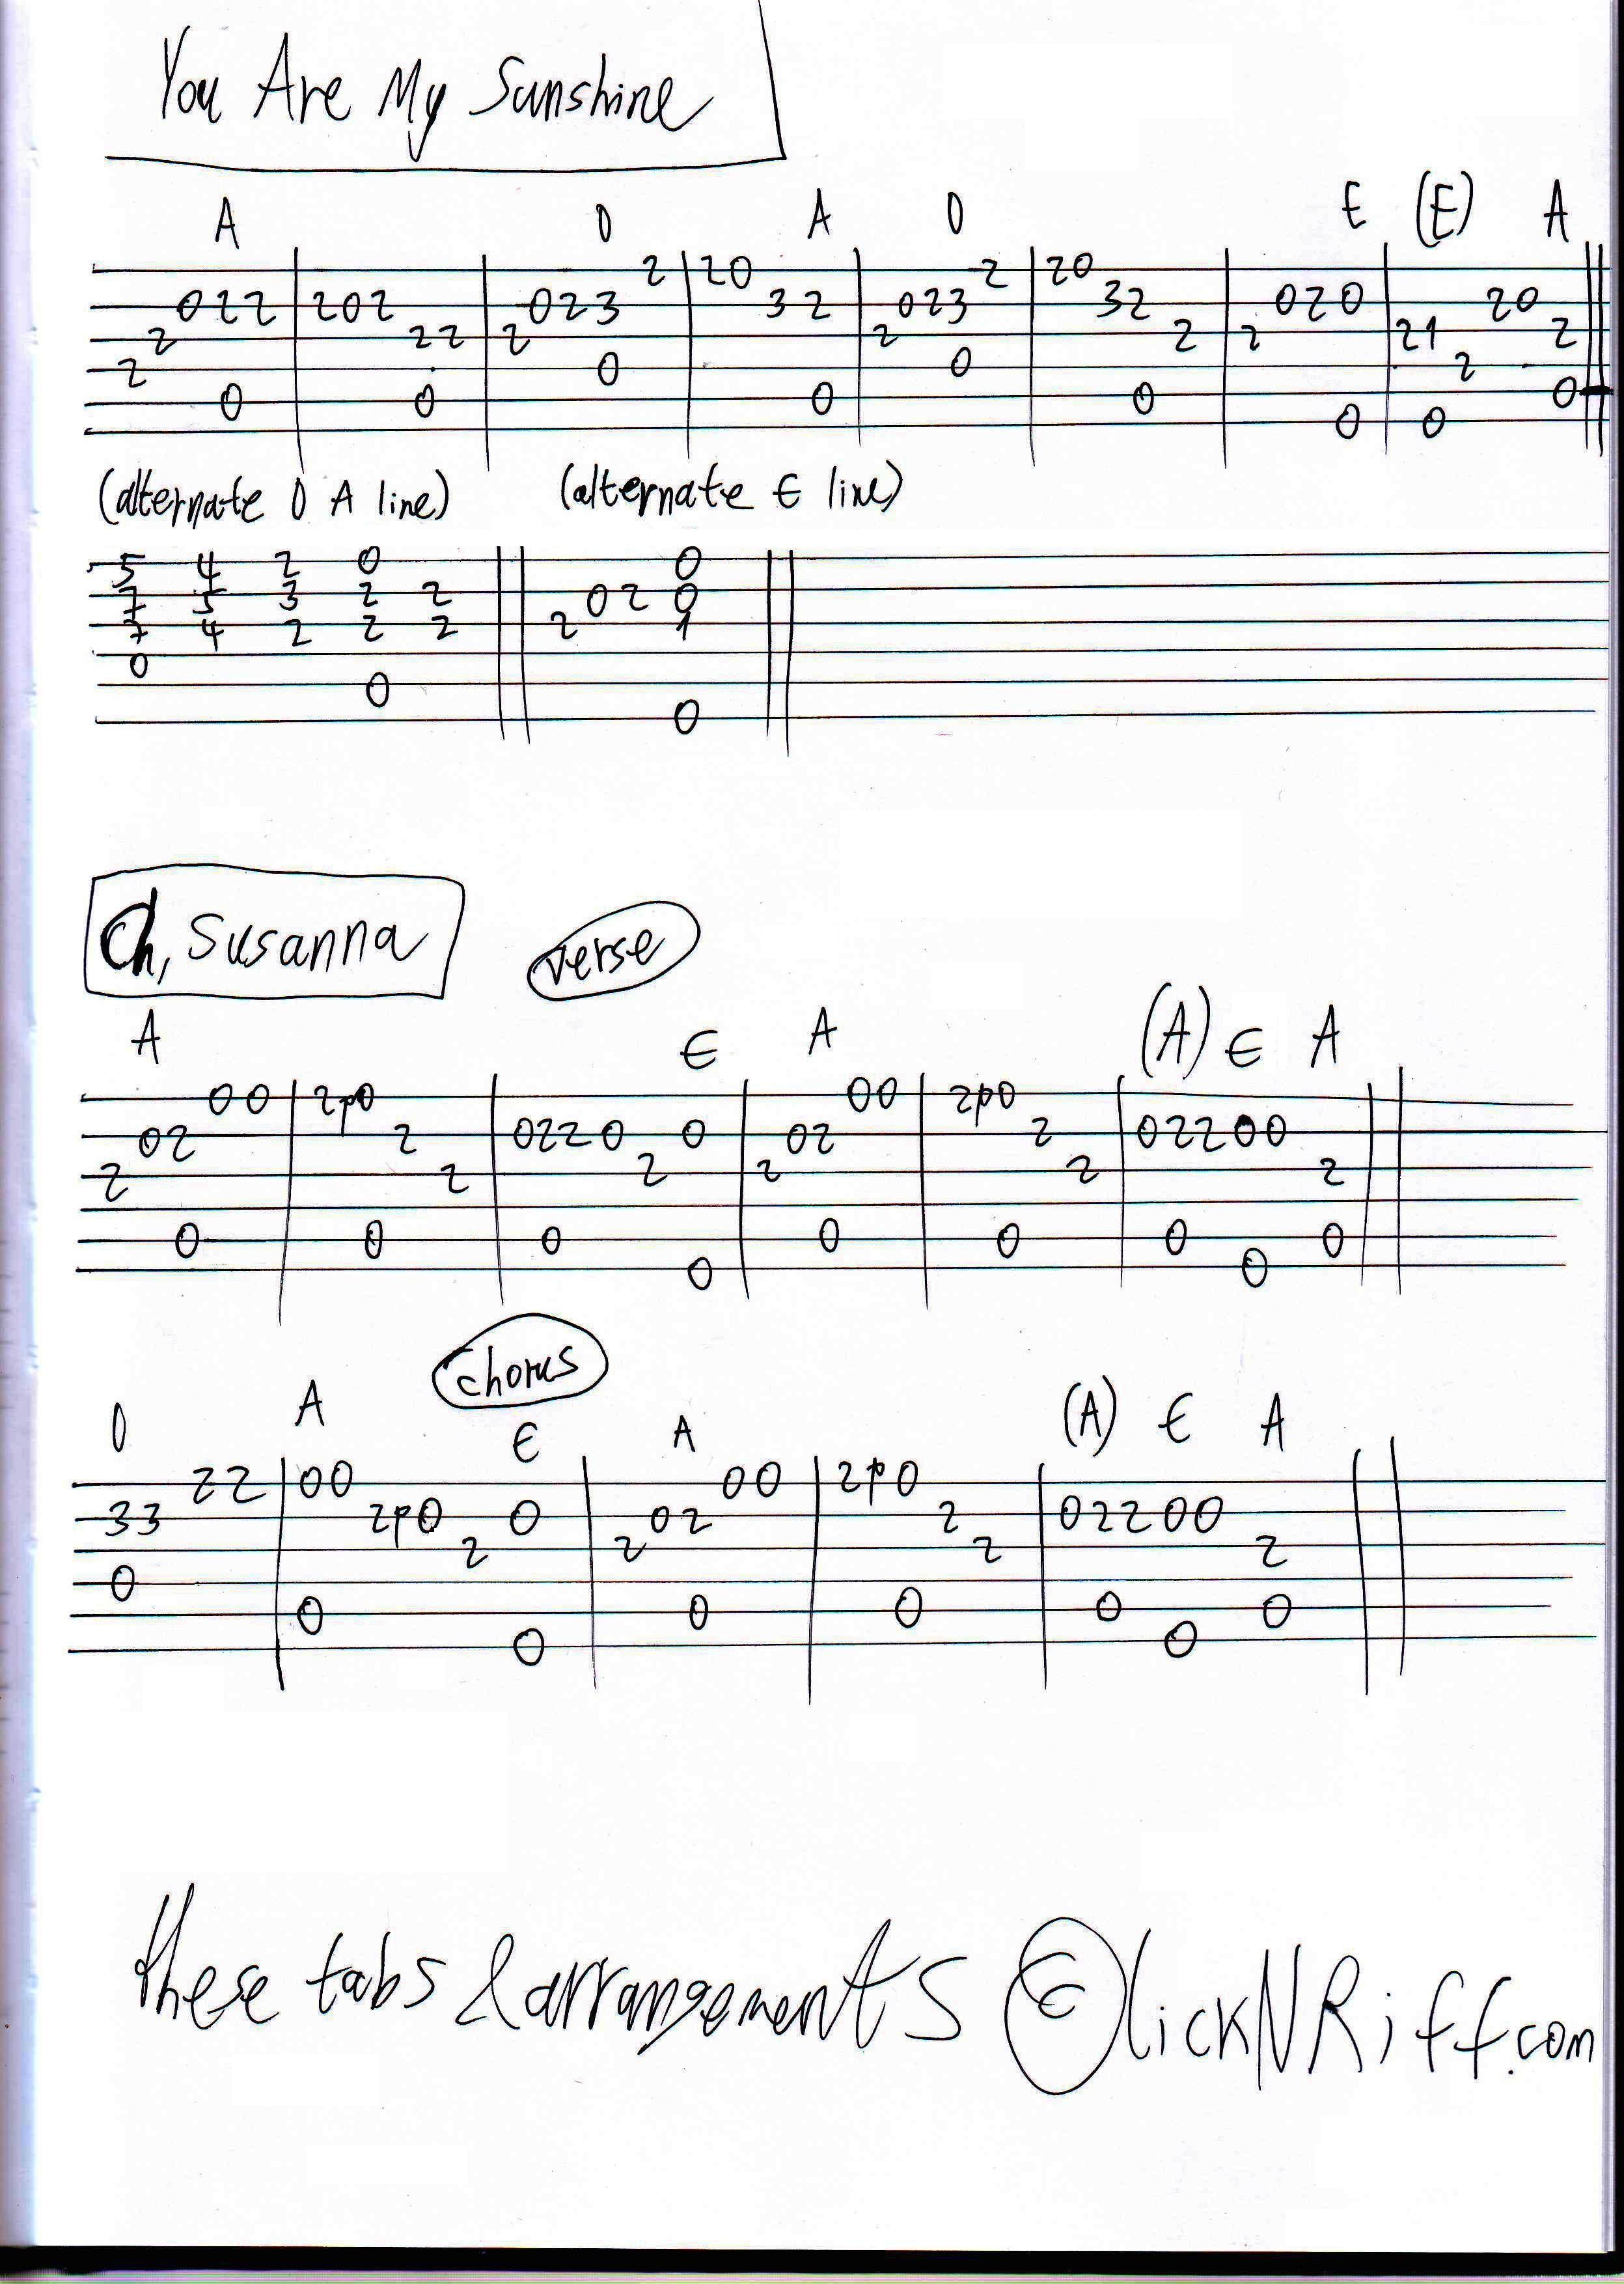 You Are My Sunshine
A D A D E (E) A
2 2 0 2 2 0 | 2 0 2 2 2 0 | 2 0 2 3 0 2 | 2 0 3 2 0 | 2 0 2 3 0 2 | 2 0 3 2 0 2 | 2 0 2 0 0 | 2 1 0 2 2 0 2 0
(alternate D A line) (alternate E line)
5 4 2 0 0
7 5 3 2 2 0 2 0
7 4 2 2 2 2 1
0
0
0
Oh, Susanna
verse
A E A (A) E A
0 0 2p0 0 0 2p0
0 2 2 0 2 2 0 0 0 2 2 0 2 2 0 0
2 2 2 2 2 2
0 0 0 0 0 0 0
0 0
chorus
D A E A (A) E A
2 2 0 0 0 0 2p0
3 3 2p0 0 0 2 2 0 2 2 0 0
2 2 2 2
0
0 0 0 0 0
0 0
these tabs & arrangements © lickNRiff.com